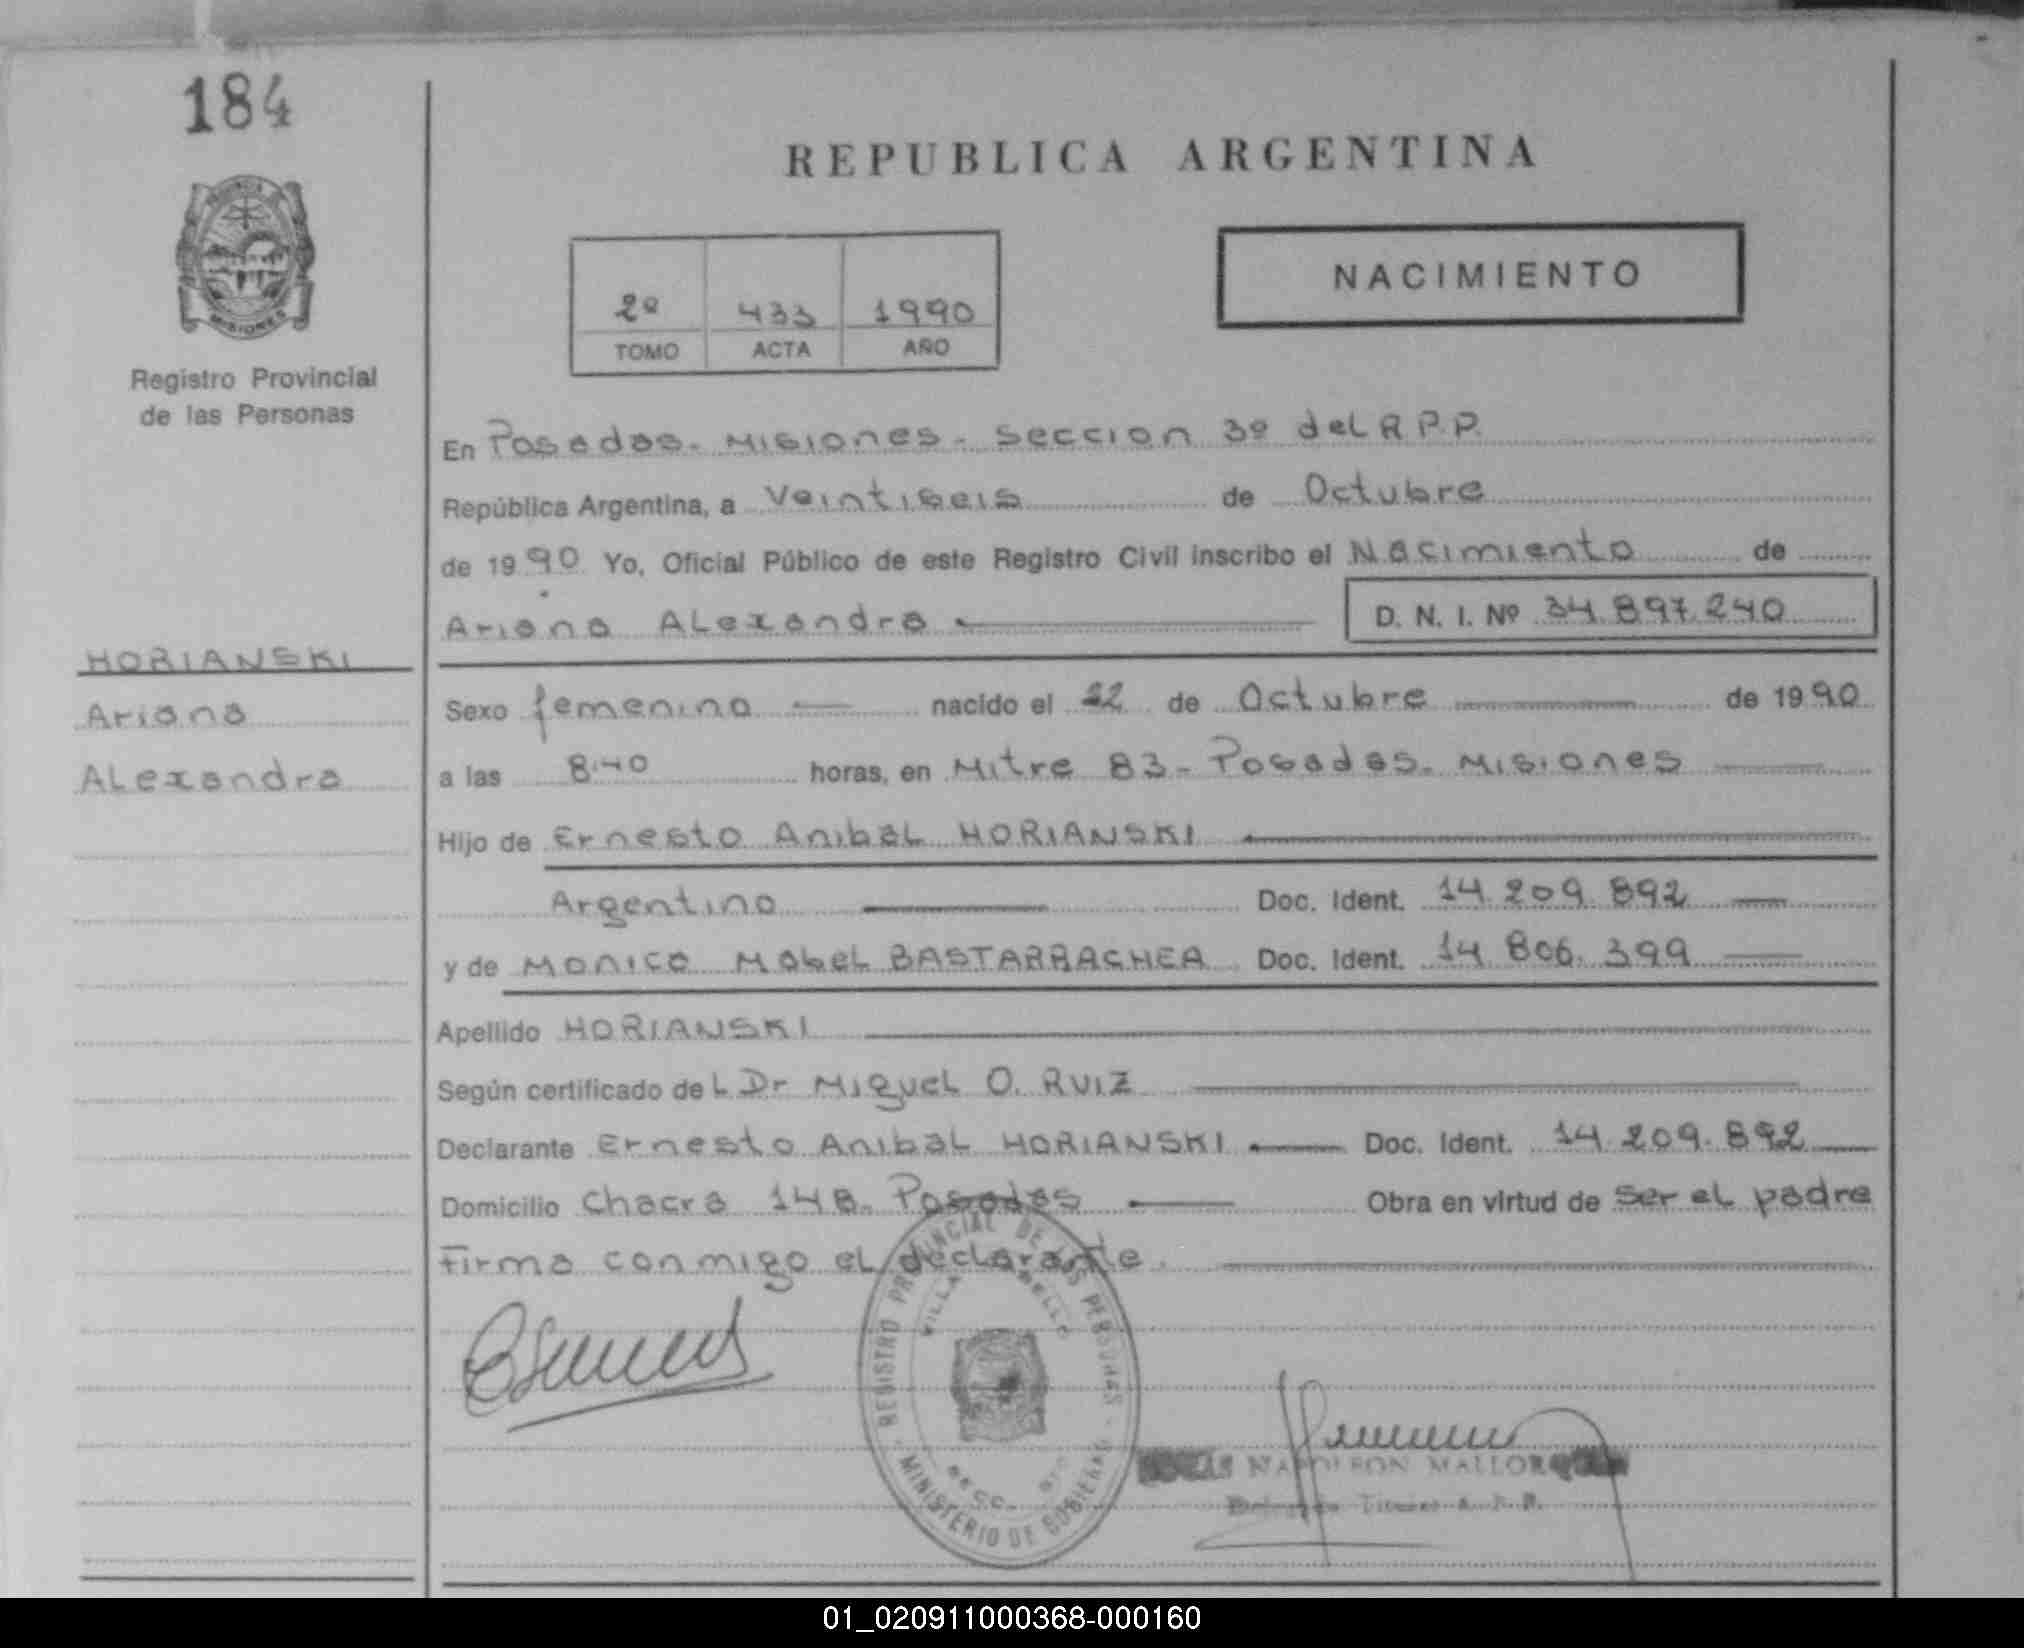 184
REPUBLICA ARGENTINA
MISIONES
Registro Provincial
de las Personas
2º 433 1990
TOMO ACTA AÑO
NACIMIENTO
En Posadas. Misiones. Seccion 3º del R.P.P.
República Argentina, a Veintiseis de Octubre
de 1990 Yo, Oficial Público de este Registro Civil inscribo el Nacimiento de
Ariana Alexandra D. N. I. Nº 34.897.240
HORIANSKI
Ariana
Alexandra
Sexo femenino nacido el 22 de Octubre de 1990
a las 8.40 horas, en Mitre 83 - Posadas. Misiones
Hijo de Ernesto Anibal HORIANSKI
Argentino Doc. Ident. 14.209.892
y de Monica Mabel BASTARRACHEA Doc. Ident. 14.806.399
Apellido HORIANSKI
Según certificado del Dr Miguel O. Ruiz
Declarante Ernesto Anibal HORIANSKI Doc. Ident. 14.209.892
Domicilio Chacra 148. Posadas Obra en virtud de ser el padre
Firma conmigo el declarante.
REGISTRO PROVINCIAL DE LAS PERSONAS
VILLA
SECC.
MINISTERIO DE GOBIERNO
NAPOLEON
Titular R.P.P.
01_020911000368-000160